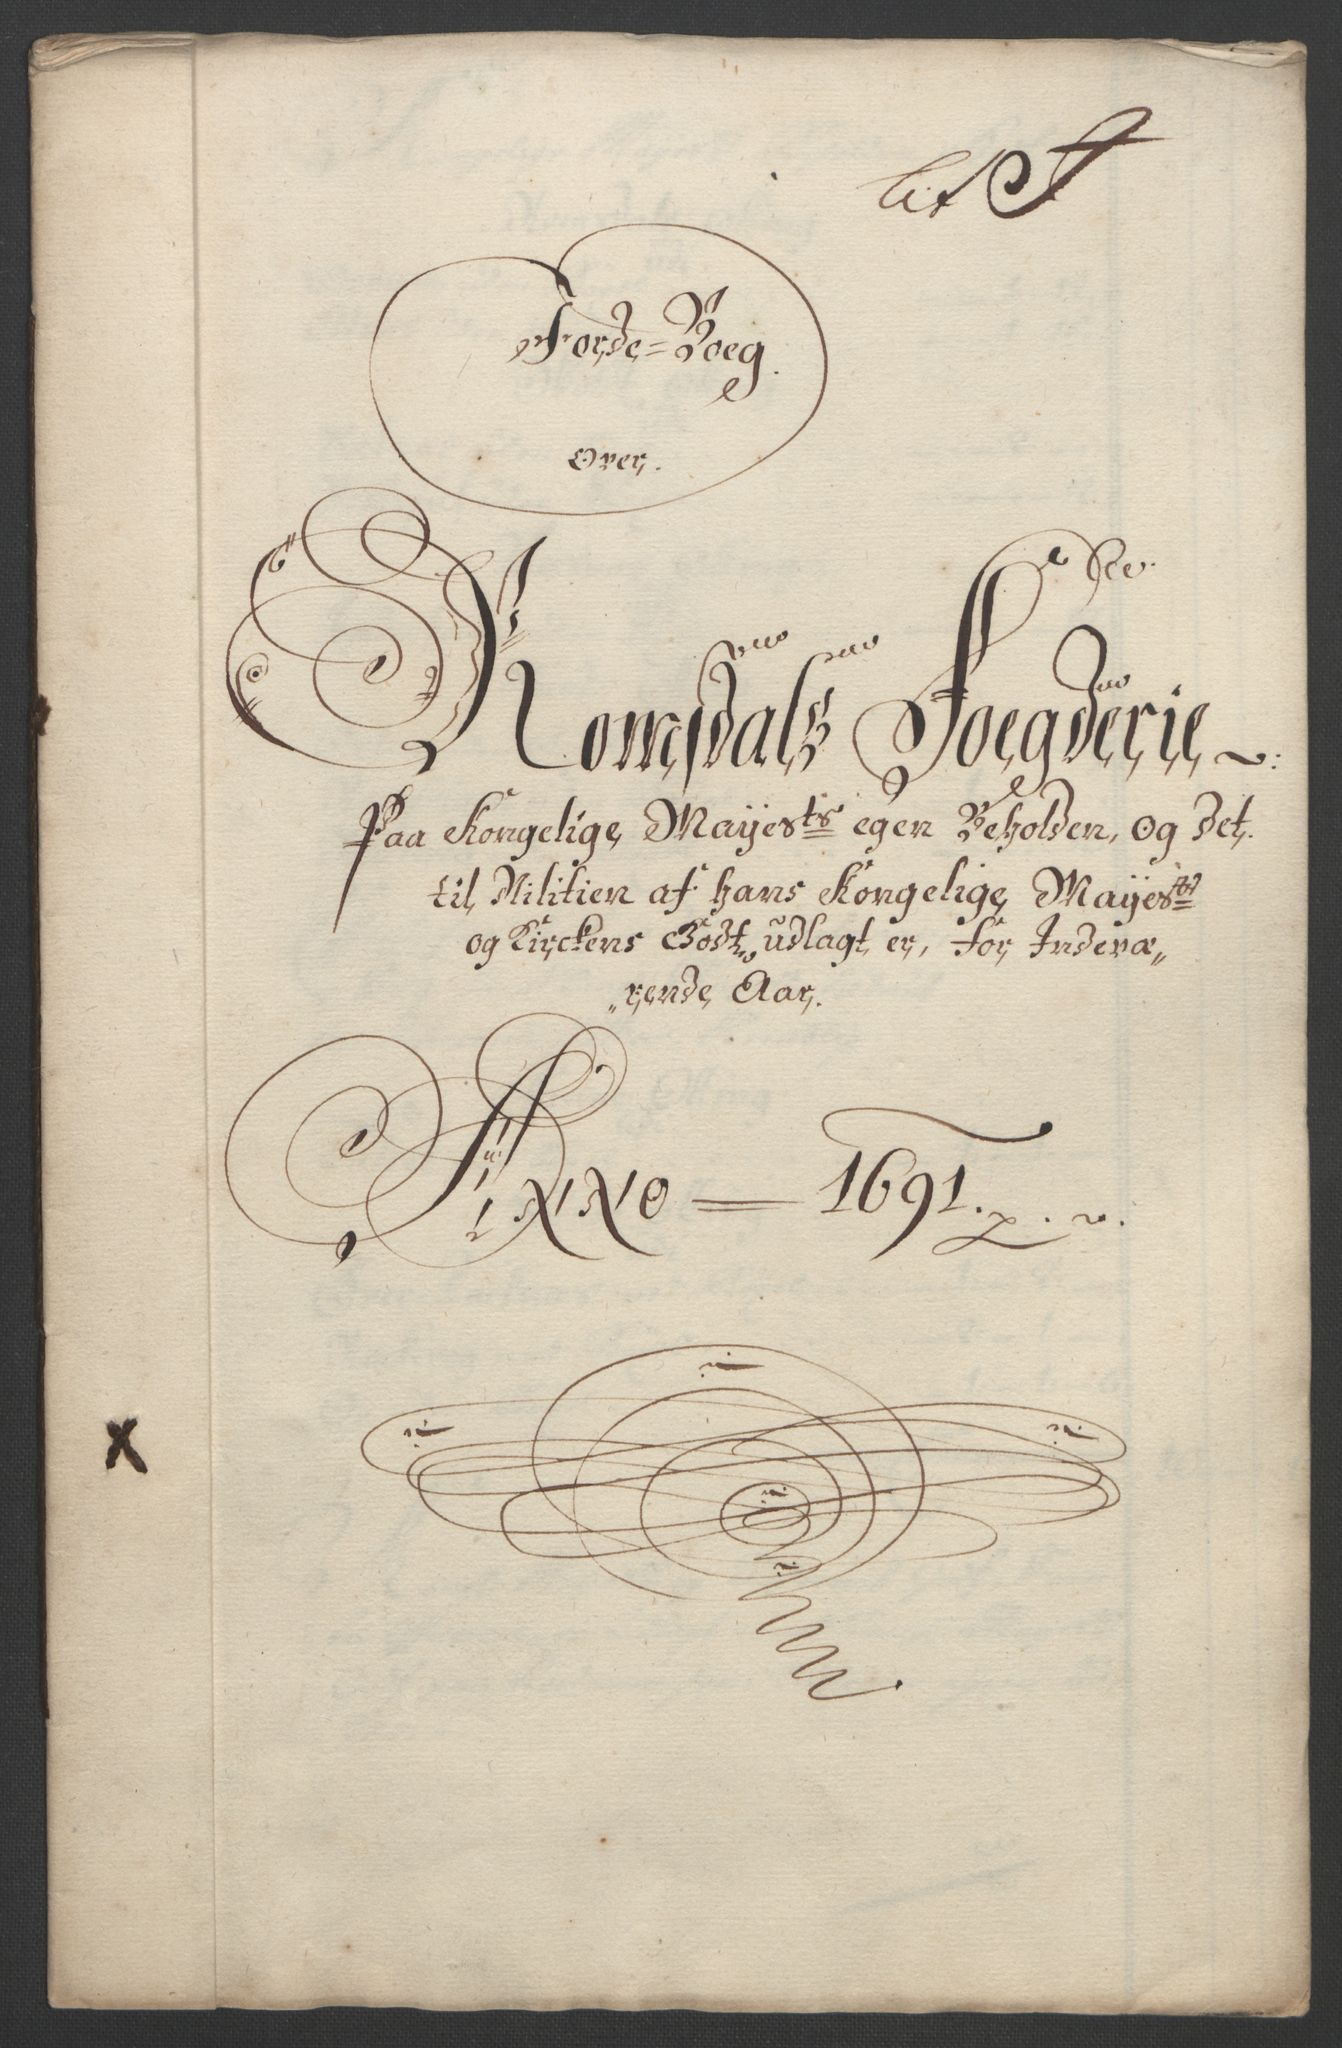 Lit
Jorde=Boeg.
Over.
Romsdals Foegderie
Paa Kongelige Mayes^ts egen Beholden, og det
til Militien af hans Kongelige Mayes^ts
og Kirckens Godtz udlagt er, for Indevæ„
„rende Aar.
ANNO = 1691.
X